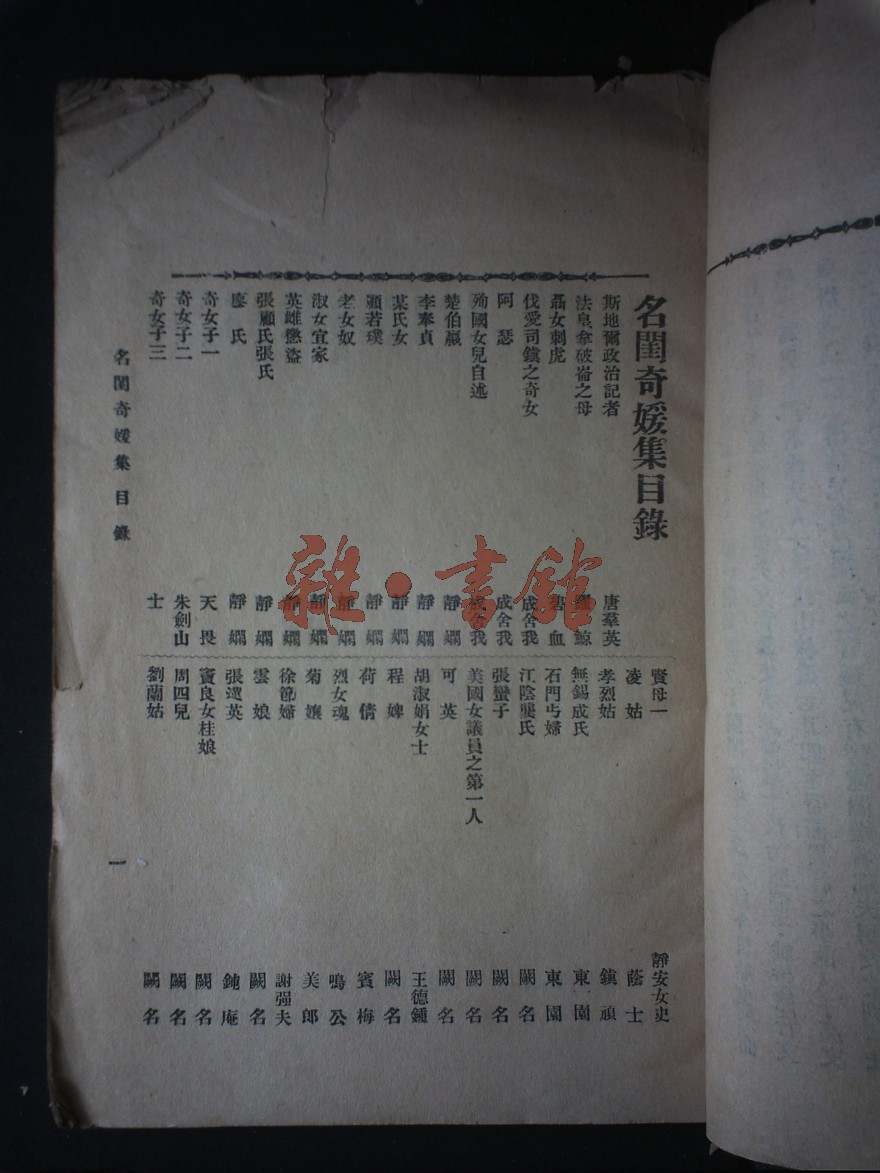 名閨奇媛集目錄
斯地爾政治記者 唐羣英
法皇拿破崙之母 鯨
聶女刺虎 碧血
伐愛司鎮之奇女 成舍我
阿瑟 成舍我
殉國女兒自述 成舍我
楚伯嬴 靜嫻
李奉貞 靜嫻
某氏女 靜嫻
顧若璞 靜嫻
老女奴 靜嫻
淑女宜家 靜嫻
英雌懲盜 靜嫻
張顧氏張氏 靜嫻
廖氏 靜嫻
奇女子一 天畏
奇女子二 朱劍山
奇女子三 士
賢母一 靜安女史
凌姑 蔭士
孝烈姑 鎮頑
無錫成氏 東園
石門丐婦 東園
江陰龔氏 闕名
張蠻子 闕名
美國女議員之第一人 闕名
可英 闕名
胡淑娟女士 王德鍾
程婢 闕名
荷倩 賓梅
烈女魂 鳴公
菊孃 美郎
徐節婦 謝强夫
雲娘 闕名
張選英 鈍庵
竇良女桂娘 闕名
周四兒 闕名
劉蘭姑 闕名
名閨奇媛集目錄
一
雜·書館